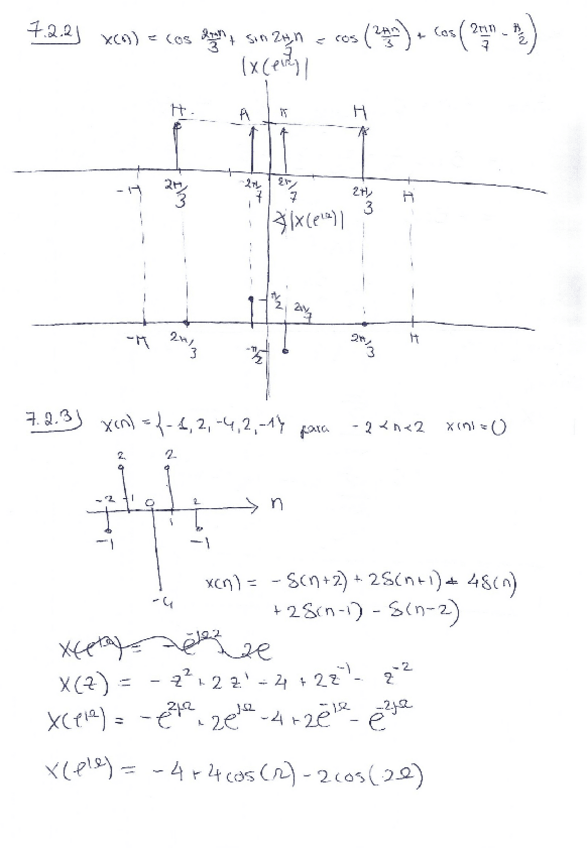 7.2.2) x(n) = cos 2πn/3 + sin 2πn/7 = cos(2πn/3) + cos(2πn/7 - π/2)
|X(e^jΩ)|
π π π π
-π 2π/3 -2π/7 2π/7 2π/3 π
∡|X(e^jΩ)|
π/2 2π/7
-π 2π/3 -π/2 2π/3 π
7.2.3) x(n) = {-1, 2, -4, 2, -1} para -2<n<2 x(n)=0
2 2
-2 -1 0 1 2 n
-1 -1
-4
x(n) = -δ(n+2) + 2δ(n+1) - 4δ(n)
+2δ(n-1) - δ(n-2)
X(e^jΩ) = -e^-jΩ2 2e
X(z) = -z^2 + 2z^1 - 4 + 2z^-1 - z^-2
X(e^jΩ) = -e^2jΩ + 2e^jΩ - 4 + 2e^-jΩ - e^-2jΩ
X(e^jΩ) = -4 + 4cos(Ω) - 2cos(2Ω)